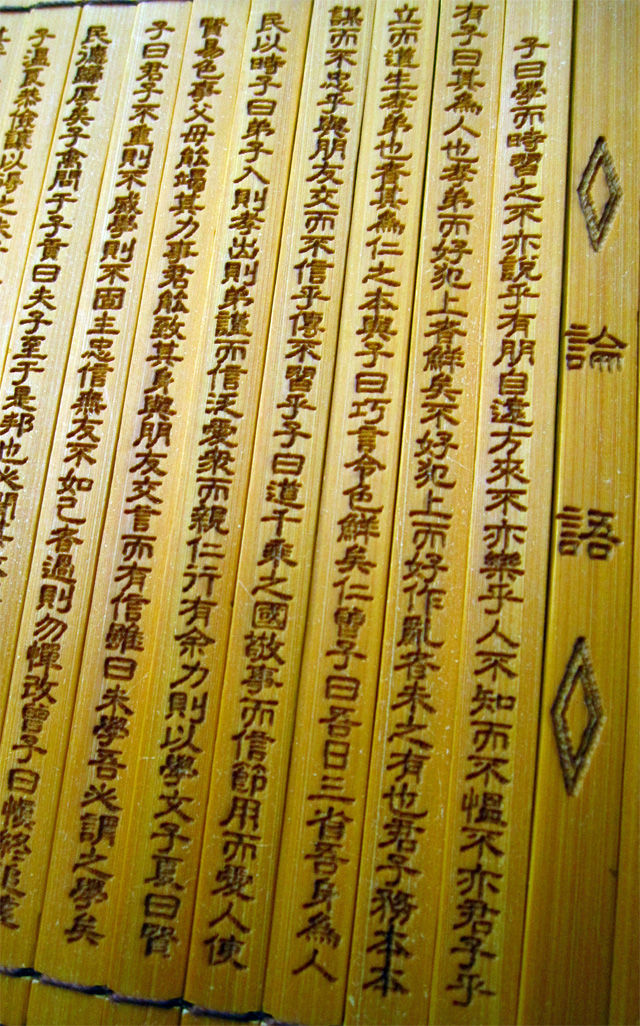 論語
子曰學而時習之不亦說乎有朋自遠方來不亦樂乎人不知而不慍不亦君子乎
有子曰其為人也孝弟而好犯上者鮮矣不好犯上而好作亂者未之有也君子務本本
立而道生孝弟也者其為仁之本與子曰巧言令色鮮矣仁曾子曰吾日三省吾身為人
謀而不忠乎與朋友交而不信乎傳不習乎子曰道千乘之國敬事而信節用而愛人使
民以時子曰弟子入則孝出則弟謹而信泛愛衆而親仁行有余力則以學文子夏曰賢
賢易色事父母能竭其力事君能致其身與朋友交言而有信雖曰未學吾必謂之學矣
子曰君子不重則不威學則不固主忠信無友不如己者過則勿憚改曾子曰慎終追遠
民德歸厚矣子禽問于子貢曰夫子至于是邦也必聞其
子溫良恭儉讓以得之夫